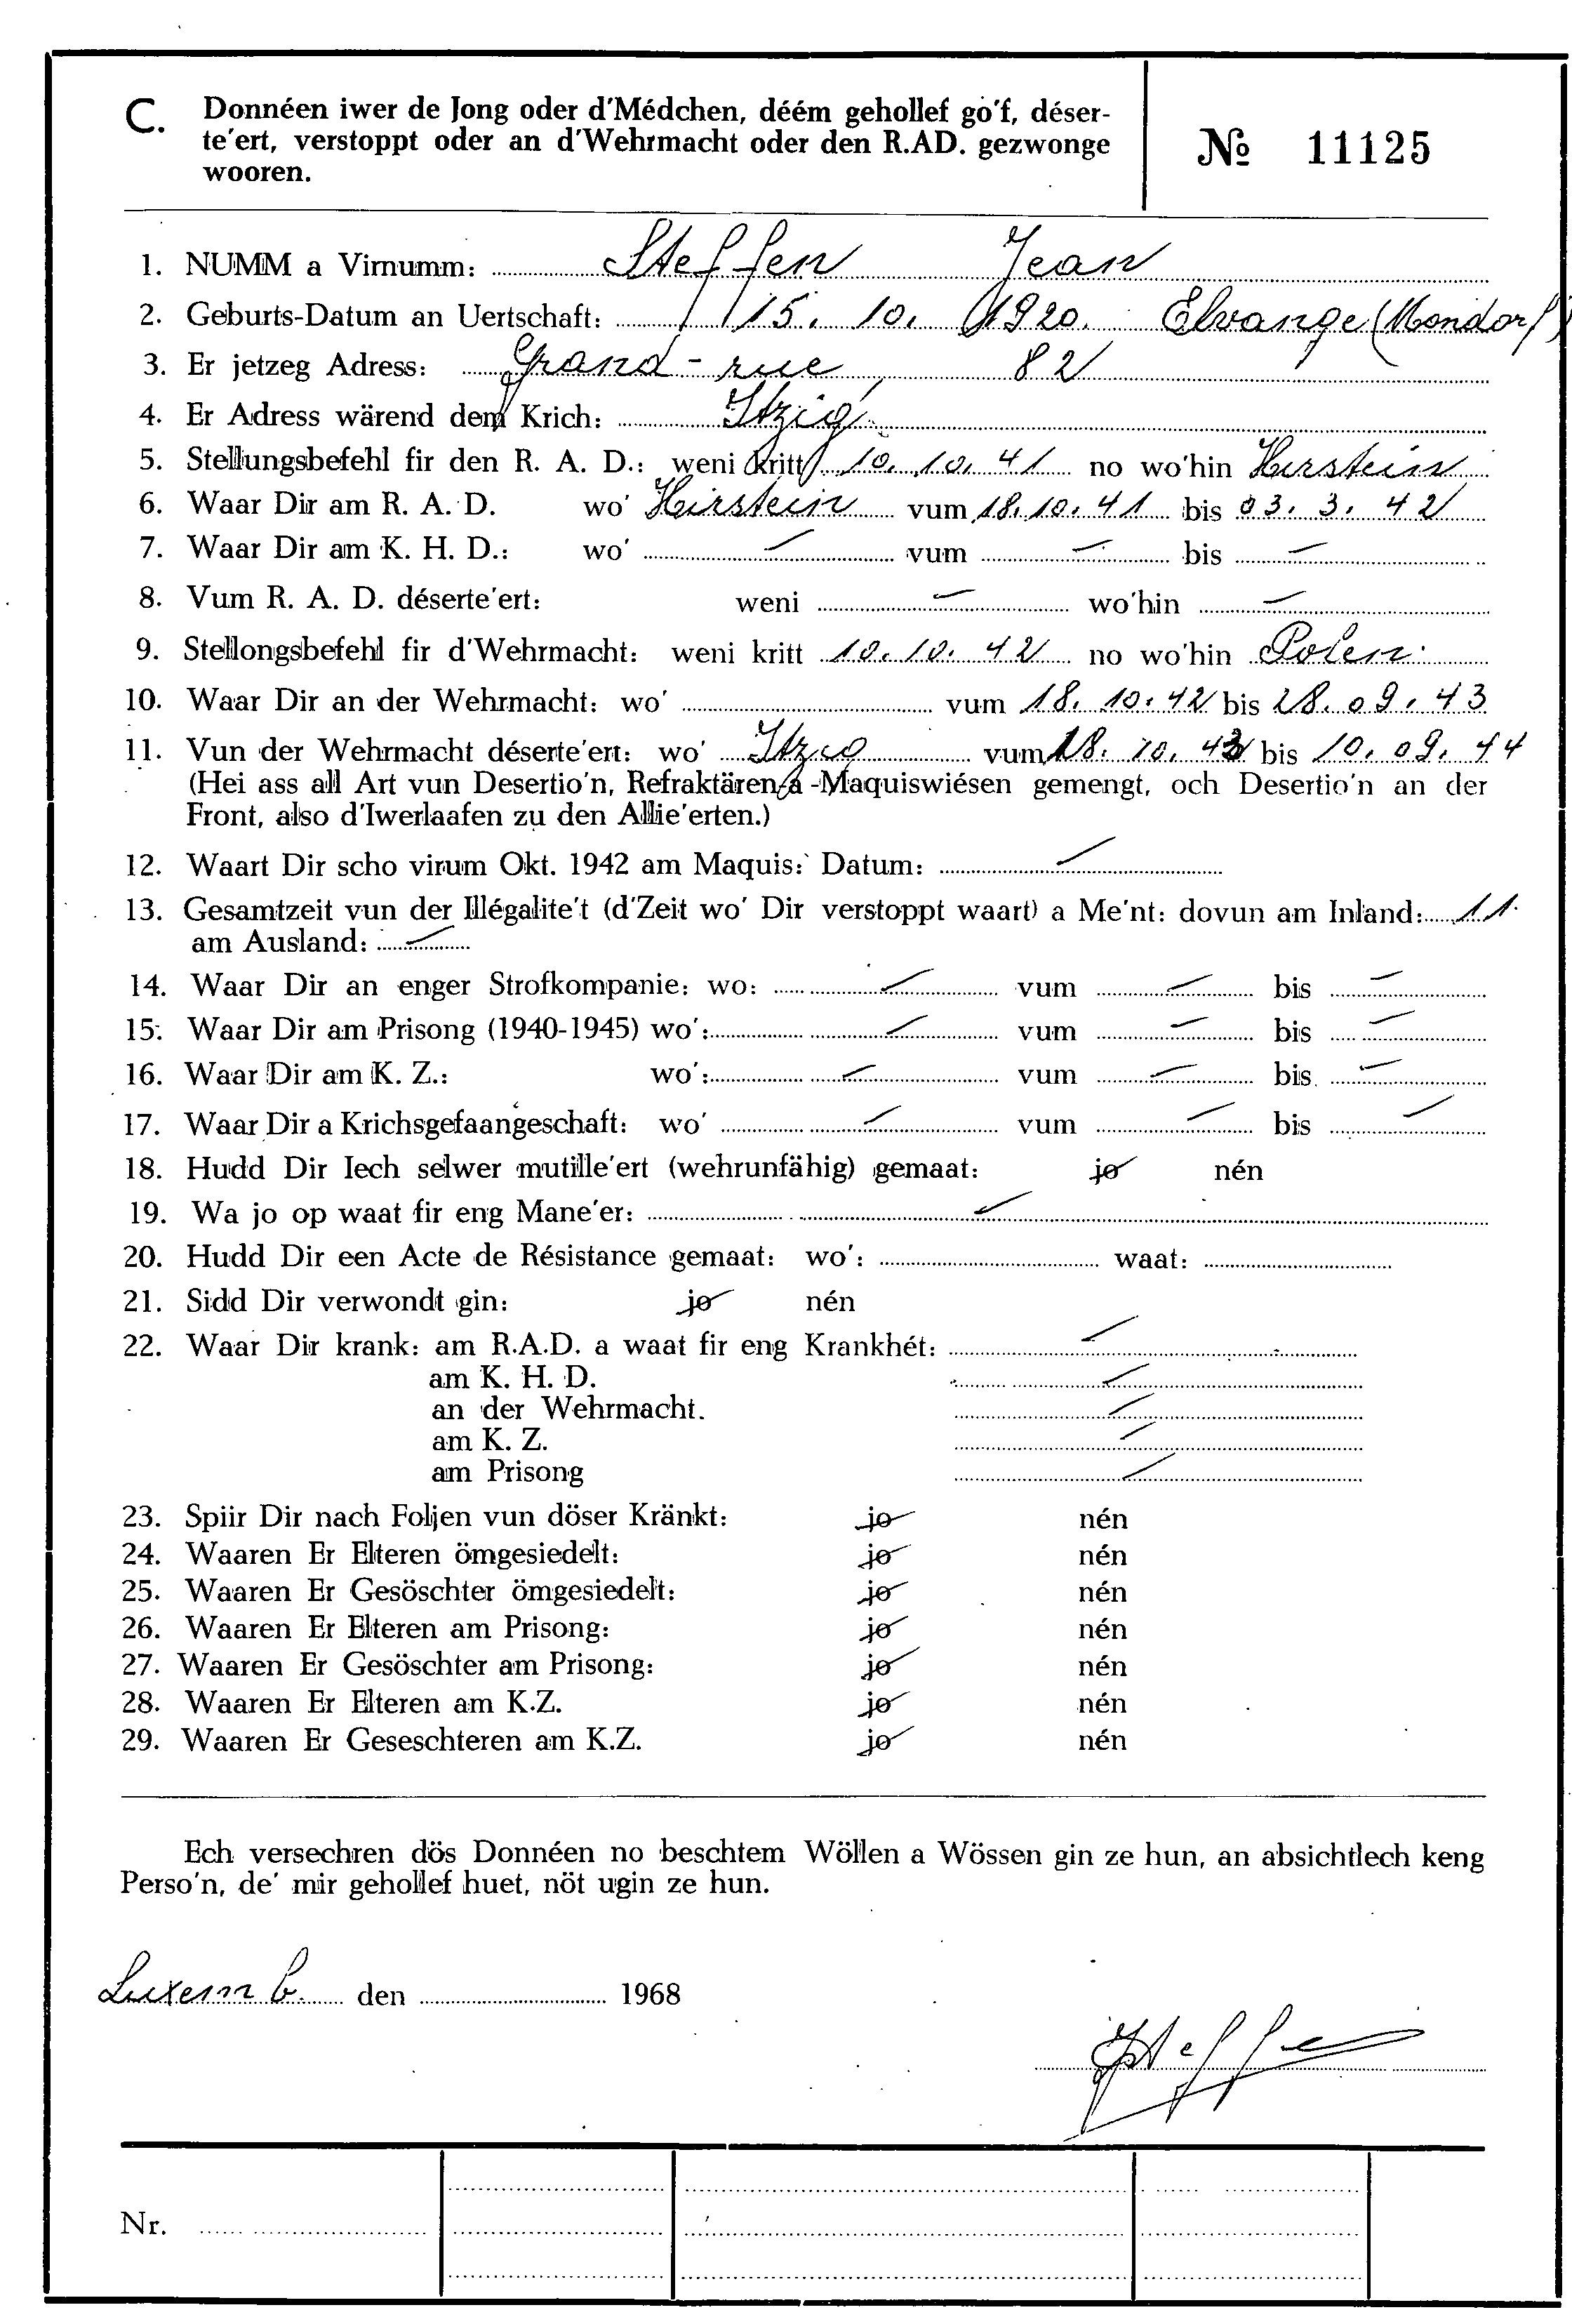 C. Donnéen iwer de Jong oder d'Médchen, déém gehollef go'f, déser-
te'ert, verstoppt oder an d'Wehrmacht oder den R.AD. gezwonge
wooren.
№ 11125
1. NUMM a Virnumm: Steffen Jean
2. Geburts-Datum an Uertschaft: 15. 10. 1920. Elvange (Mondorf)
3. Er jetzeg Adress: Grand-rue 82
4. Er Adress wärend dem Krich: Itzig
5. Stellungsbefehl fir den R. A. D.: weni kritt 10. 10. 41 no wo'hin Hirstein
6. Waar Dir am R. A. D. wo' Hirstein vum 18. 10. 41 bis 03. 3. 42
7. Waar Dir am K. H. D.: wo' — vum — bis —
8. Vum R. A. D. déserte'ert: weni — wo'hin —
9. Stellongsbefehl fir d'Wehrmacht: weni kritt 10. 10. 42 no wo'hin Polen
10. Waar Dir an der Wehrmacht: wo' vum 18. 10. 42 bis 28. 09. 43
11. Vun der Wehrmacht déserte'ert: wo' Itzig vum 18. 10. 43 bis 10. 09. 44
(Hei ass all Art vun Desertio'n, Refraktären a -Maquiswiésen gemengt, och Desertio'n an der
Front, also d'Iwerlaafen zu den Allie'erten.)
12. Waart Dir scho virum Okt. 1942 am Maquis: Datum: —
13. Gesamtzeit vun der Illégalite't (d'Zeit wo' Dir verstoppt waart) a Me'nt: dovun am Inland: 11
am Ausland: —
14. Waar Dir an enger Strofkompanie: wo: — vum — bis —
15. Waar Dir am Prisong (1940-1945) wo': — vum — bis —
16. Waar Dir am K. Z.: wo': — vum — bis —
17. Waar Dir a Krichsgefaangeschaft: wo' — vum — bis —
18. Hudd Dir Iech selwer mutille'ert (wehrunfähig) gemaat: jo nén
19. Wa jo op waat fir eng Mane'er: —
20. Hudd Dir een Acte de Résistance gemaat: wo': waat:
21. Sidd Dir verwondt gin: jo nén
22. Waar Dir krank: am R.A.D. a waat fir eng Krankhét: —
am K. H. D. —
an der Wehrmacht. —
am K. Z. —
am Prisong —
23. Spiir Dir nach Foljen vun döser Kränkt: jo nén
24. Waaren Er Elteren ömgesiedelt: jo nén
25. Waaren Er Gesöschter ömgesiedelt: jo nén
26. Waaren Er Elteren am Prisong: jo nén
27. Waaren Er Gesöschter am Prisong: jo nén
28. Waaren Er Elteren am K.Z. jo nén
29. Waaren Er Geseschteren am K.Z. jo nén
Ech versechren dös Donnéen no beschtem Wöllen a Wössen gin ze hun, an absichtlech keng
Perso'n, de' mir gehollef huet, nöt ugin ze hun.
Luxemb. den 1968
JSteffen
Nr.